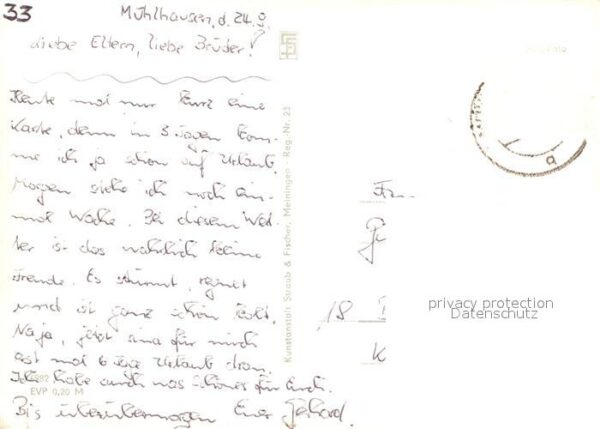 33
Mühlhausen, d. 24.9.
Liebe Eltern, liebe Brüder!
Heute mal nur kurz eine
Karte, denn in 3 Tagen kom-
me ich ja schon auf Urlaub.
Morgen stehe ich noch ein-
mal Wache. Bei diesem Wet-
ter ist das wahrlich keine
Freude. Es stürmt, regnet
und ist ganz schön kalt.
Na ja, jetzt sind für mich
erst mal 6 Tage Urlaub dran.
Ich habe auch was schönes für Euch.
Bis überübermorgen Euer Gerhard.
EVP 0,20 M
Kunstanstalt Straub & Fischer, Meiningen · Reg.-Nr. 23
Fam.
18
K
privacy protection
Datenschutz